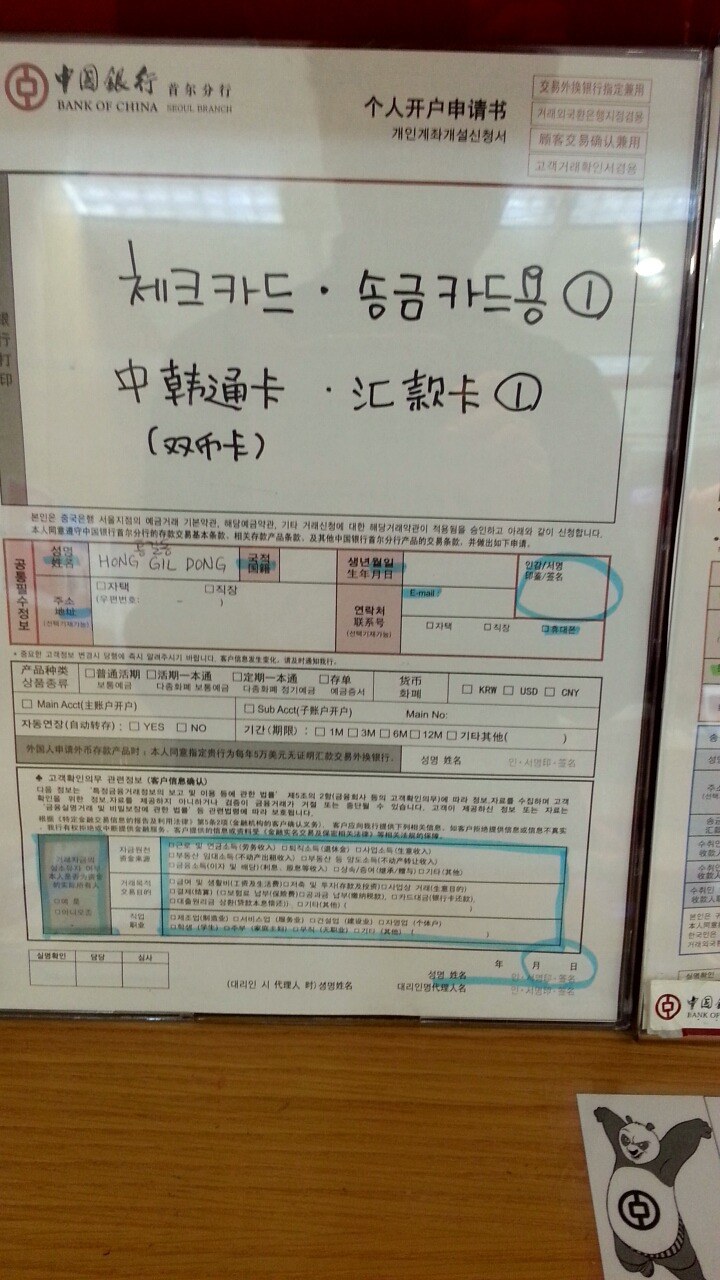 中国银行 首尔分行
BANK OF CHINA SEOUL BRANCH
个人开户申请书
개인계좌개설신청서
交易外换银行指定兼用
거래외국환은행지정겸용
顾客交易确认兼用
고객거래확인서겸용
银行打印
체크카드 · 송금카드용 ①
中韩通卡 · 汇款卡 ①
(双币卡)
본인은 중국은행 서울지점의 예금거래 기본약관, 해당예금약관, 기타 거래신청에 대한 해당거래약관이 적용됨을 승인하고 아래와 같이 신청합니다.
本人同意遵守中国银行首尔分行的存款交易基本条款、相关存款产品条款、及其他中国银行首尔分行产品的交易条款、并做出如下申请。
공통필수정보
성명
姓名
홍길동
HONG GIL DONG
국적
国籍
생년월일
生年月日
인감/서명
印鉴/签名
주소
地址
(选择기재가능)
□자택 □직장
(우편번호: – )
연락처
联系号
(선택기재가능)
E-mail:
□자택 □직장 □휴대폰
* 중요한 고객정보 변경시 당행에 즉시 알려주시기 바랍니다. 客户信息发生变化，请及时通知我行。
产品种类
상품종류
□普通活期 □活期一本通 □定期一本通 □存单
보통예금 다종화폐 보통예금 다종화폐 정기예금 예금증서
货币
화폐
□ KRW □ USD □ CNY
□ Main Acct(主账户开户) □ Sub Acct(子账户开户) Main No:
자동연장(自动转存) : □ YES □ NO 기간(期限) : □ 1M □ 3M □ 6M □ 12M □ 기타其他( )
外国人申请外币存款产品时：本人同意指定贵行为每年5万美元无证明汇款交易外换银行.
성명 姓名 인·서명印·签名
◆ 고객확인의무 관련정보 (客户信息确认)
다음 정보는 "특정금융거래정보의 보고 및 이용 등에 관한 법률" 제5조의 2항(금융회사 등의 고객확인의무)에 따라 정보,자료를 수집하며 고객
확인을 위한 정보,자료를 제공하지 아니하거나 검증이 금융거래가 거절 또는 중단될 수 있습니다. 고객이 제공하신 정보 또는 자료는
"금융실명거래 및 비밀보장에 관한 법률" 등 관련법령에 따라 보호됩니다.
根据《特定金融交易信息的报告及利用法律》第5条2项(金融机构的客户确认义务)、客户应向我行提供下列相关信息。如客户拒绝提供信息或信息不真实
거래자금의
실소유자 여부
本人是否为资金
的实际所有人
□예 是
□아니오否
자금원천
资金来源
□근로 및 연금소득(劳务收入) □퇴직소득(退休金) □사업소득(生意收入)
□부동산 임대소득(不动产出租收入) □부동산 등 양도소득(不动产转让收入)
□금융소득(이자 및 배당)(利息、股息等收入) □상속/증여(继承/赠与) □기타(其他)
거래목적
交易目的
□급여 및 생활비(工资及生活费) □저축 및 투자(存款及投资) □사업상 거래(生意目的)
□결제(结算) □보험료 납부(保险费) □공과금 납부(缴纳税款) □카드대금(银行卡还款)
□대출원리금 상환(贷款本息偿还) □기타(其他) ( )
직업
职业
□제조업(制造业) □서비스업 (服务业) □건설업 (建设业) □자영업 (个体户)
□학생 (学生) □주부 (家庭主妇) □무직 (无职业) □기타 (其他) ( )
年 月 日
실명확인 담당 심사
성명 姓名 인·서명印·签名
(대리인 시 代理人 时) 성명姓名 대리인명代理人名 인·서명印·签名
中国
BANK OF